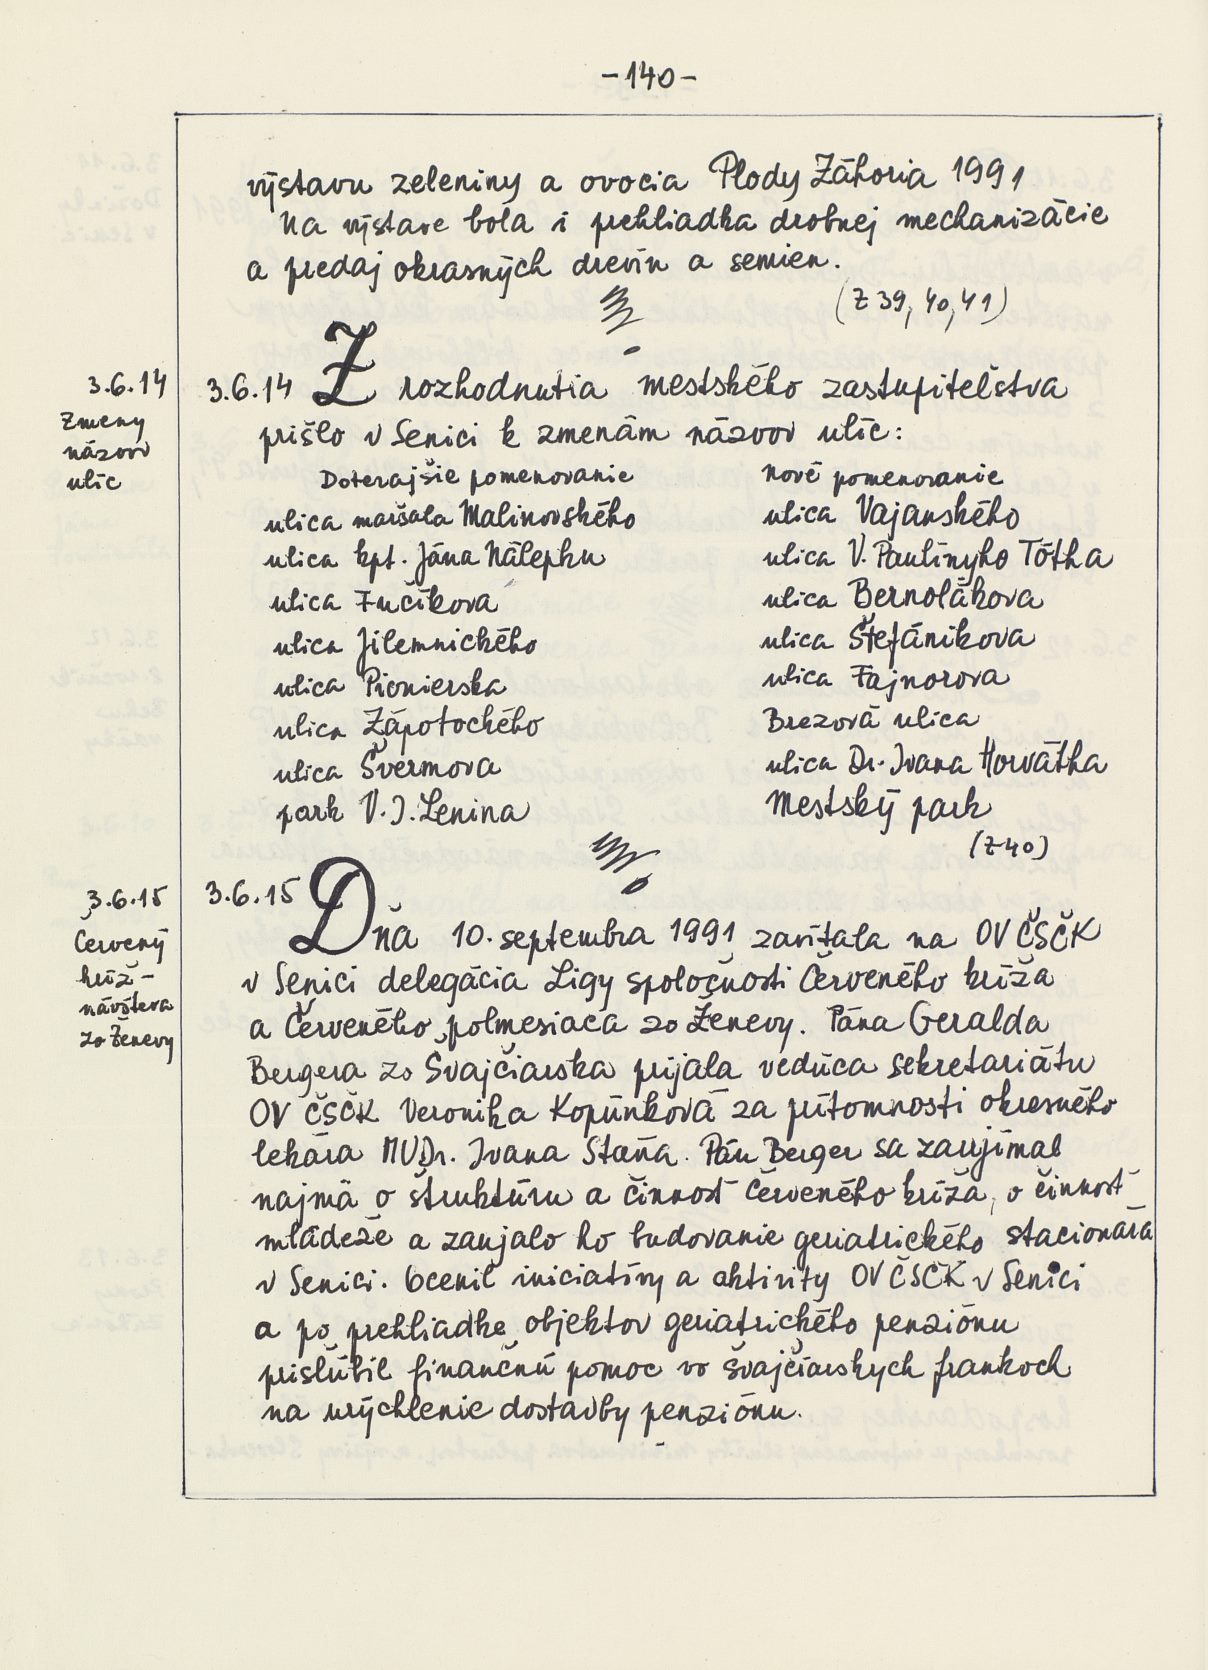 -140-
výstavu zeleniny a ovocia Plody Záhoria 1991
Na výstave bola i prehliadka drobnej mechanizácie
a predaj okrasných drevín a semien.
(Z 39, 40, 41)
3.6.14
Zmeny
názvov
ulíc
3.6.14 Z rozhodnutia mestského zastupiteľstva
prišlo v Senici k zmenám názvov ulíc:
Doterajšie pomenovanie nové pomenovanie
ulica maršala Malinovského ulica Vajanského
ulica kpt. Jána Nálepku ulica V. Paulínyho Tótha
ulica Fučíkova ulica Bernolákova
ulica Jilemnického ulica Štefánikova
ulica Pionierska ulica Fajnorova
ulica Zápotockého Brezová ulica
ulica Švermova ulica Dr. Ivana Horvátha
park V. I. Lenina Mestský park
(Z 40)
3.6.15
Červený
kríž -
návšteva
zo Ženevy
3.6.15 Dňa 10. septembra 1991 zavítala na OV ČSČK
v Senici delegácia Ligy spoločnosti Červeného kríža
a Červeného polmesiaca zo Ženevy. Pána Geralda
Bergera zo Švajčiarska prijala vedúca sekretariátu
OV ČSČK Veronika Kopúnková za prítomnosti okresného
lekára MUDr. Ivana Staňa. Pán Berger sa zaujímal
najmä o štruktúru a činnosť Červeného kríža, o činnosť
mládeže a zaujalo ho budovanie geriatrického stacionára
v Senici. Ocenil iniciatívy a aktivity OV ČSČK v Senici
a po prehliadke objektov geriatrického penziónu
prislúbil finančnú pomoc vo švajčiarskych frankoch
na urýchlenie dostavby penziónu.